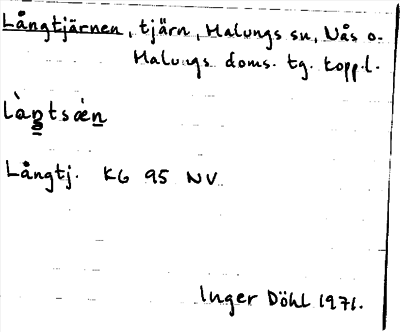 Långtjärnen, tjärn, Malungs sn, Nås o.
Malungs doms. tg. Kopp.l.
Làŋtsǽn
Långtj. K6 95 NV
Inger Döhl 1971.